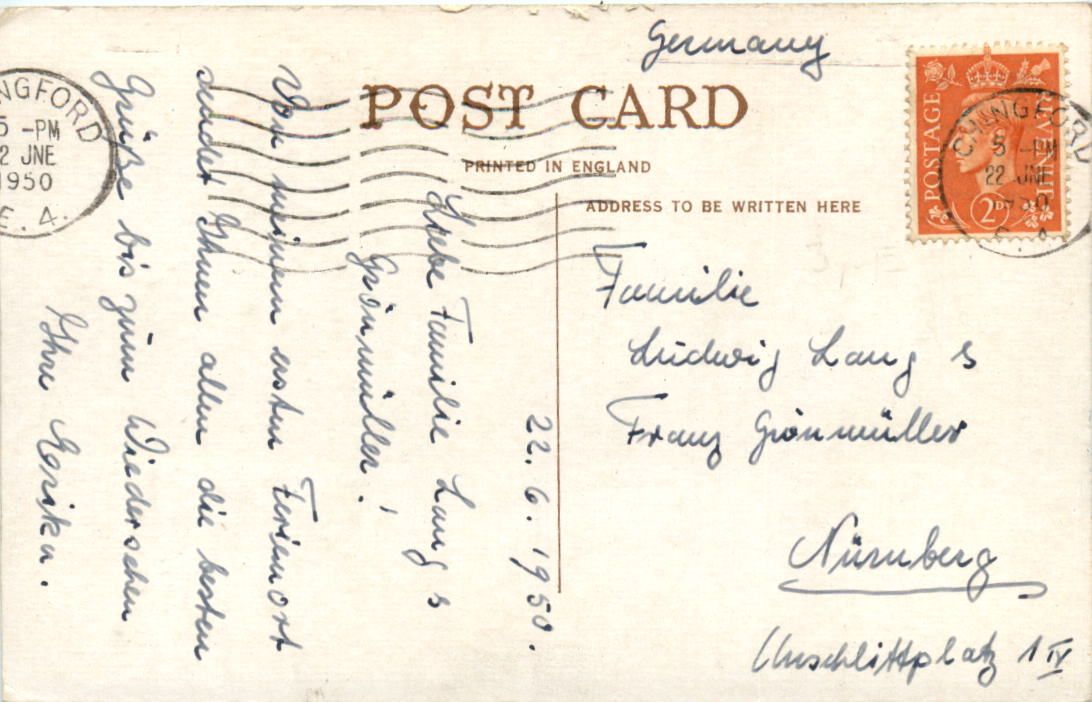 Germany
POST CARD
PRINTED IN ENGLAND
ADDRESS TO BE WRITTEN HERE
POSTAGE
REVENUE
2D
CHINGFORD
5 -PM
22 JNE
1950
E. 4.
NGFORD
5 -PM
2 JNE
1950
E. 4.
22. 6. 1950.
Liebe Familie Lang &
Grönmüller!
Von meinem ersten Ferienort
sendet Ihnen allen die besten
Grüße bis zum Wiedersehen
Ihre Erika.
Familie
Ludwig Lang &
Franz Grönmüller
Nürnberg
Unschlittplatz 1 IV